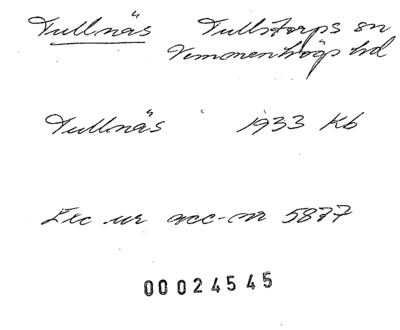 Tullnäs Tullstorps sn
Vemmenhögs hd
Tullnäs 1933 Kb
Exc ur acc-nr 5877
00024545